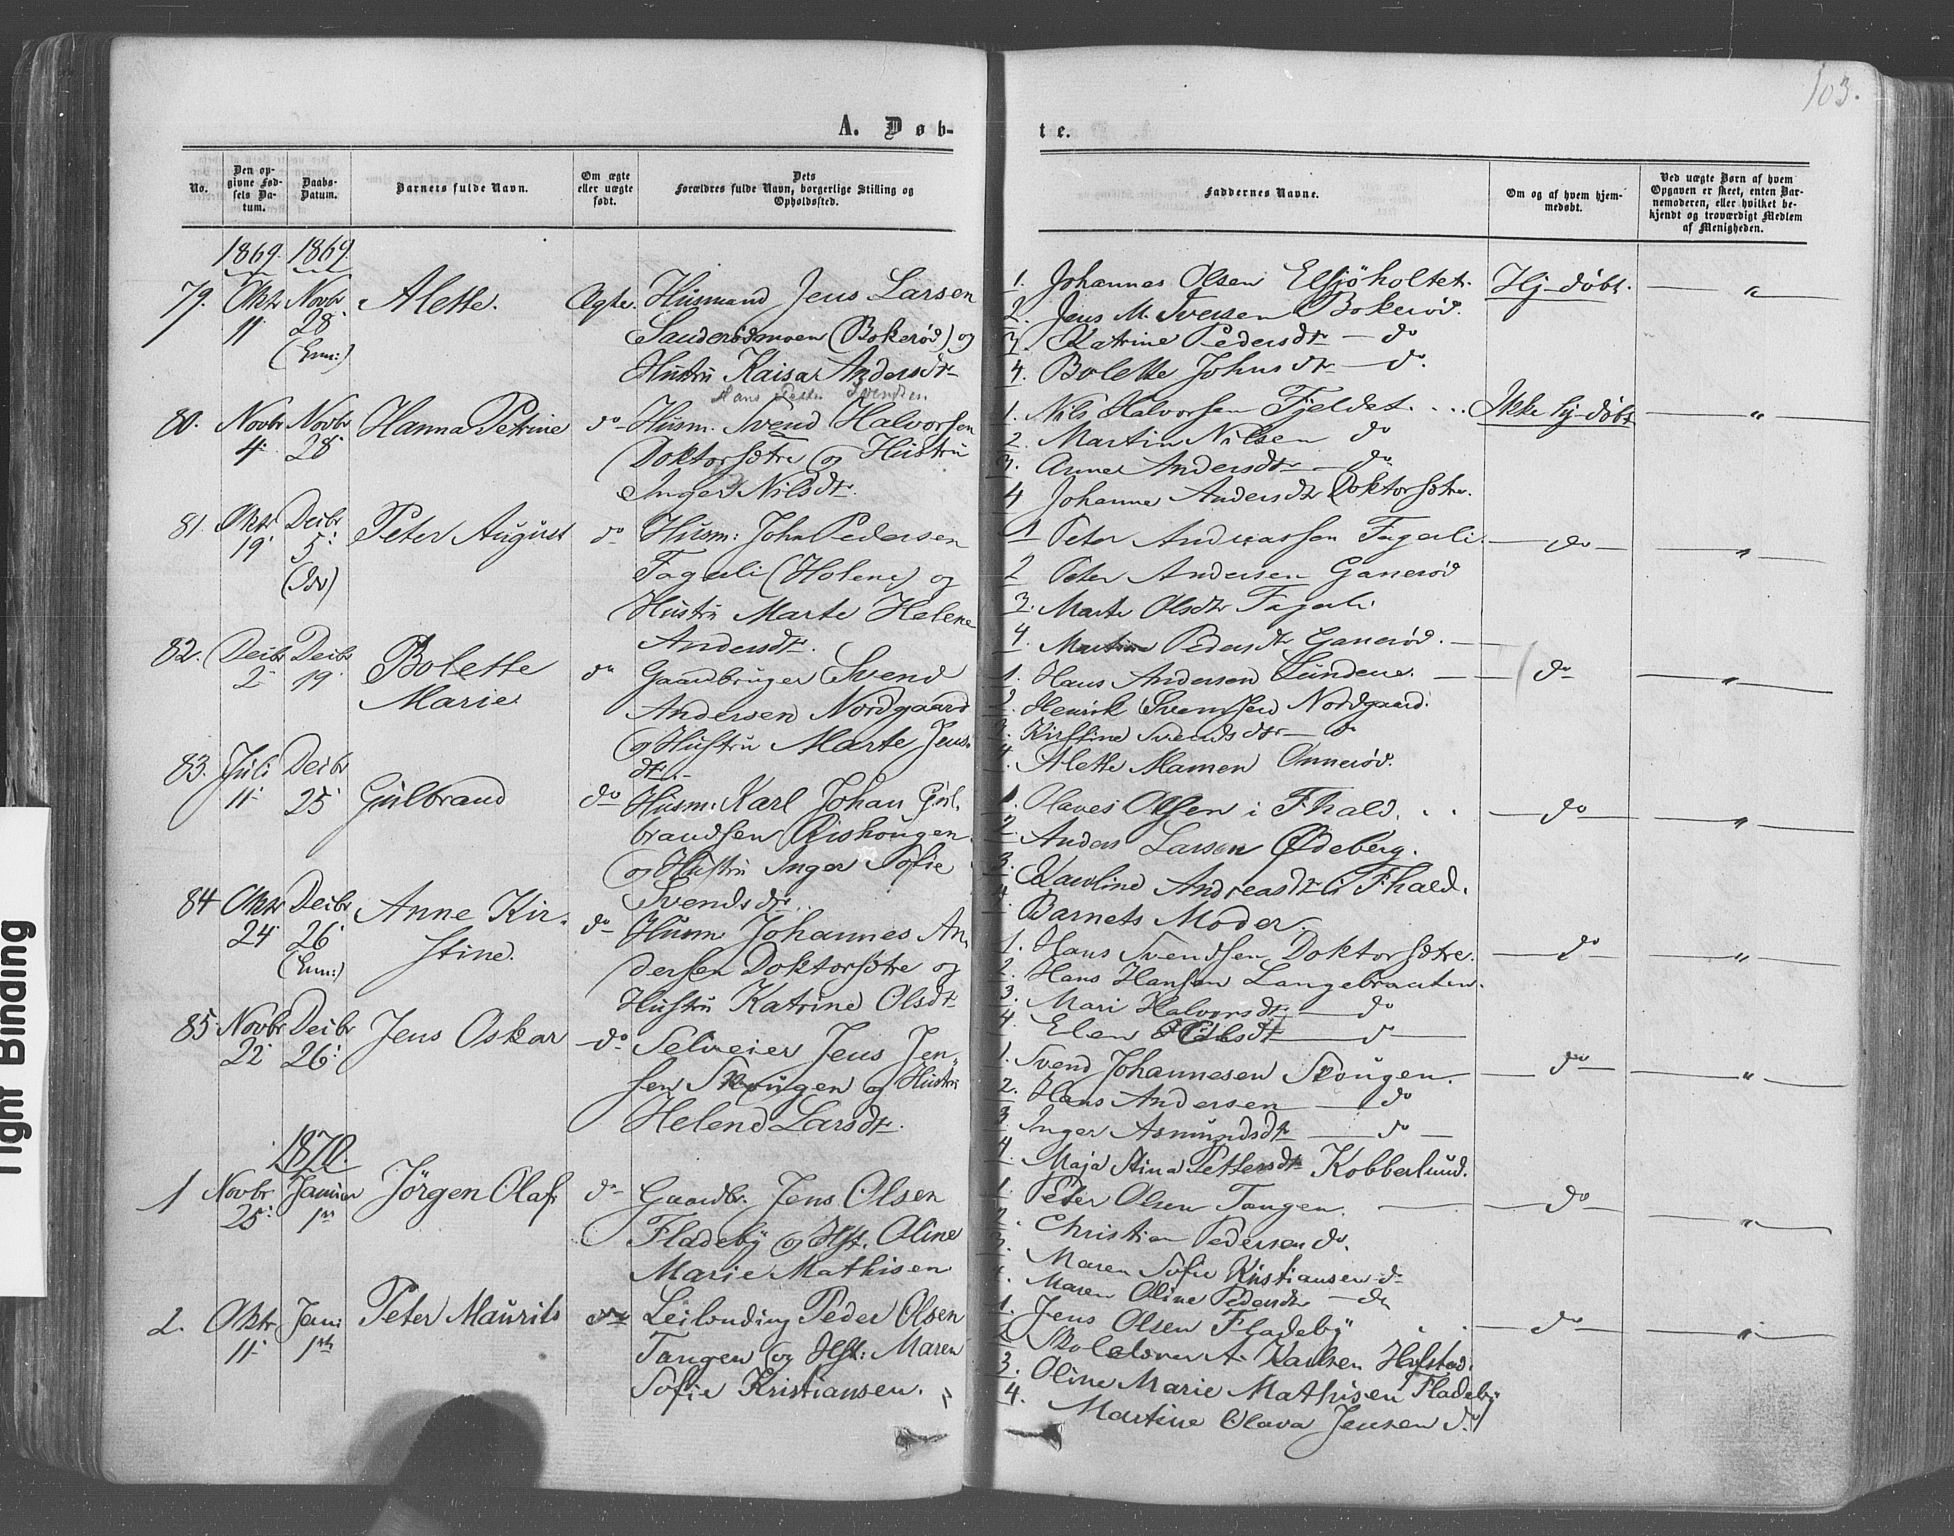 103.
A. Døb-
te.
No.
Den op-
givne Fød-
sels Da-
tum.
Daabs-
Datum.
Barnets fulde Navn.
Om ægte
eller uægte
født.
Dets
Forældres fulde Navn, borgerlige Stilling og
Opholdssted.
Faddernes Navne.
Om og af hvem hjem-
medøbt.
Ved uægte Børn af hvem
Opgaven er skeet, enten Bar-
nemoderen, eller hvilket be-
kjendt og troværdigt Medlem
af Menigheden.
1869. 1869.
79. Oktr 11. Novbr 28. (Enn:) Alette. Ægte. Husmand Jens Larsen
Sandersdmoen (Bokerød) og
Hustru Kaisa Andersdtr
1. Johannes Olsen Elsjøholtet. Hj-døbt. "
2. Jens M. Iversen Bokerød.
3. Katrine Pedersdtr - do
4. Bolette Johnsdtr - do.
Hans Petter Svendsen
80. Novbr 4. Novbr 28. Hanna Petrine do Husm: Svend Halvorsen
Doktorsætre og Hustru
Inger Nilsdtr.
1. Nils Halvorsen Fjeldet. Ikke hj-døbt "
2. Martin Nilsen do
3. Anne Andersdtr - do
4 Johanne Andersdtr Doktorsætre.
81. Oktr 19. Decbr 5. Peter August do Husm: John Pedersen
Fagerli (Holene) og
Hustru Marte Helene
Andersdtr.
1 Peter Andreassen Fagerli. do "
2 Peter Andersen Ganerød
3. Marte Olsdtr Fagerli
4. Martine Pedersdtr Ganerød.
82. Decbr 2. Decbr 19. Bolette
Marie do Gaardbruger Svend
Andersen Nordgaard
og Hustru Marte Jens-
dtr.
1. Hans Andersen Lundene. do "
2. Henrik Svensen Nordgaard.
3. Kirstine Svendsdtr - do
4. Alette Mamen Onnerød.
83. Juli 11. Decbr 25. Gulbrand do Husm: Karl Johan Gul-
brandsen Riskougen
og Hustru Inger Sofie
Svendsdtr.
1. Olaves Olsen i Fhald. do "
2. Anders Larsen Ødeberg.
3. Karoline Andreasdtr i Fhald.
4. Barnets Moder.
84 Oktr 24. Decbr 26. (Enn:) Anne Kir-
stine. do Husm. Johannes An-
dersen Doktorsætre og
Hustru Katrine Olsdtr
1. Hans Svendsen Doktorsætre. do "
2. Hans Hansen Langebraaten.
3. Mari Halvorsdtr do
4. Elen Olsdtr do
85 Novbr 22. Decbr 26. Jens Oskar do Selveier Jens Jen-
sen Skougen og Hustru
Helene Larsdtr.
1. Svend Johannesen Skougen. do "
2. Hans Andersen do
3. Inger Asmundsdtr do
4. Maja Stina Pettersdtr Kobberlund.
1870.
1 Novbr 25. Januar 1ste Jörgen Olaf. do Gaardbr. Jens Olsen
Fladeby og Hst. Oline
Marie Mathisen
1. Peter Olsen Tangen. do "
2. Christian Pedersen do.
3. Maren Sofie Kristiansen do
4. Maren Oline Pedersdtr do
2. Oktr 11. Jan: 1ste Peter Maurits do Leilending Peder Olsen
Tangen og Hst: Maren
Sofie Kristiansen.
1. Jens Olsen Fladeby do "
2. Skolelærer A. Karlsen Hafstad.
3. Oline Marie Mathisen Fladeby
4. Martine Olava Jensen do
Tight Binding